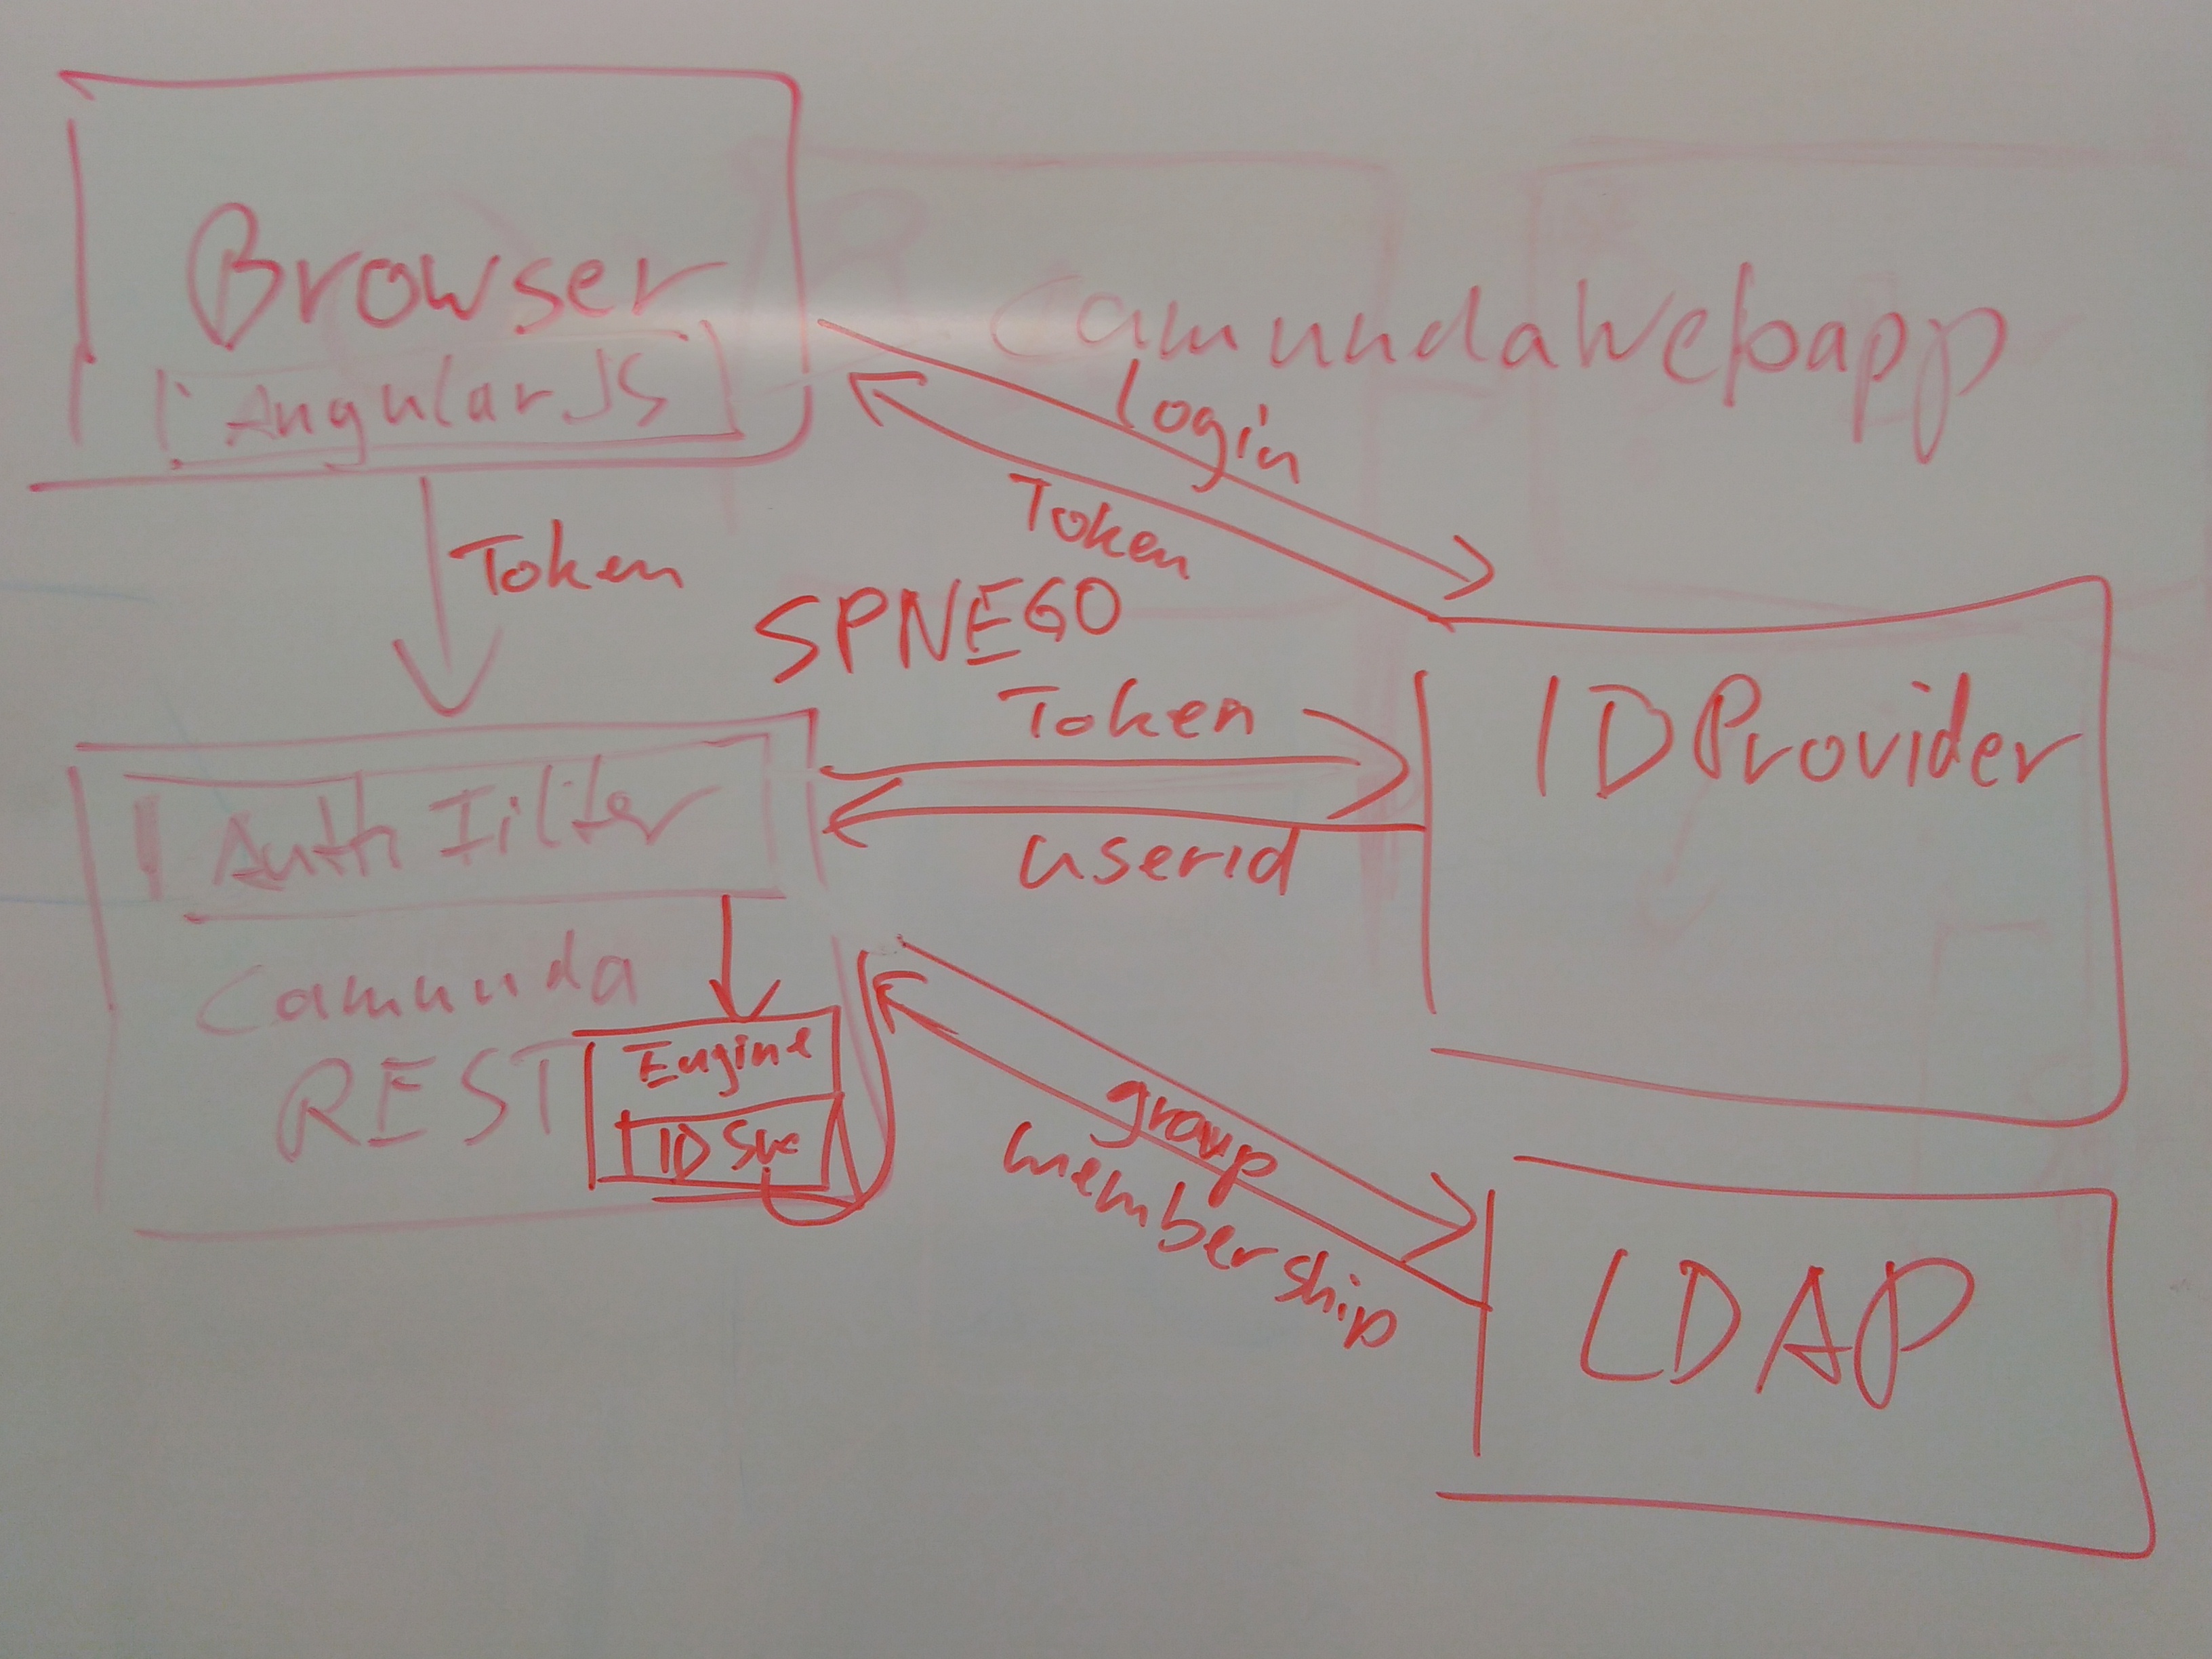 Browser
AngularJS
camundaWebapp
Login
Token
Token
SPNEGO
Token
userid
IDProvider
Auth Filter
Camunda
REST
Engine
ID Svc
group
membership
LDAP